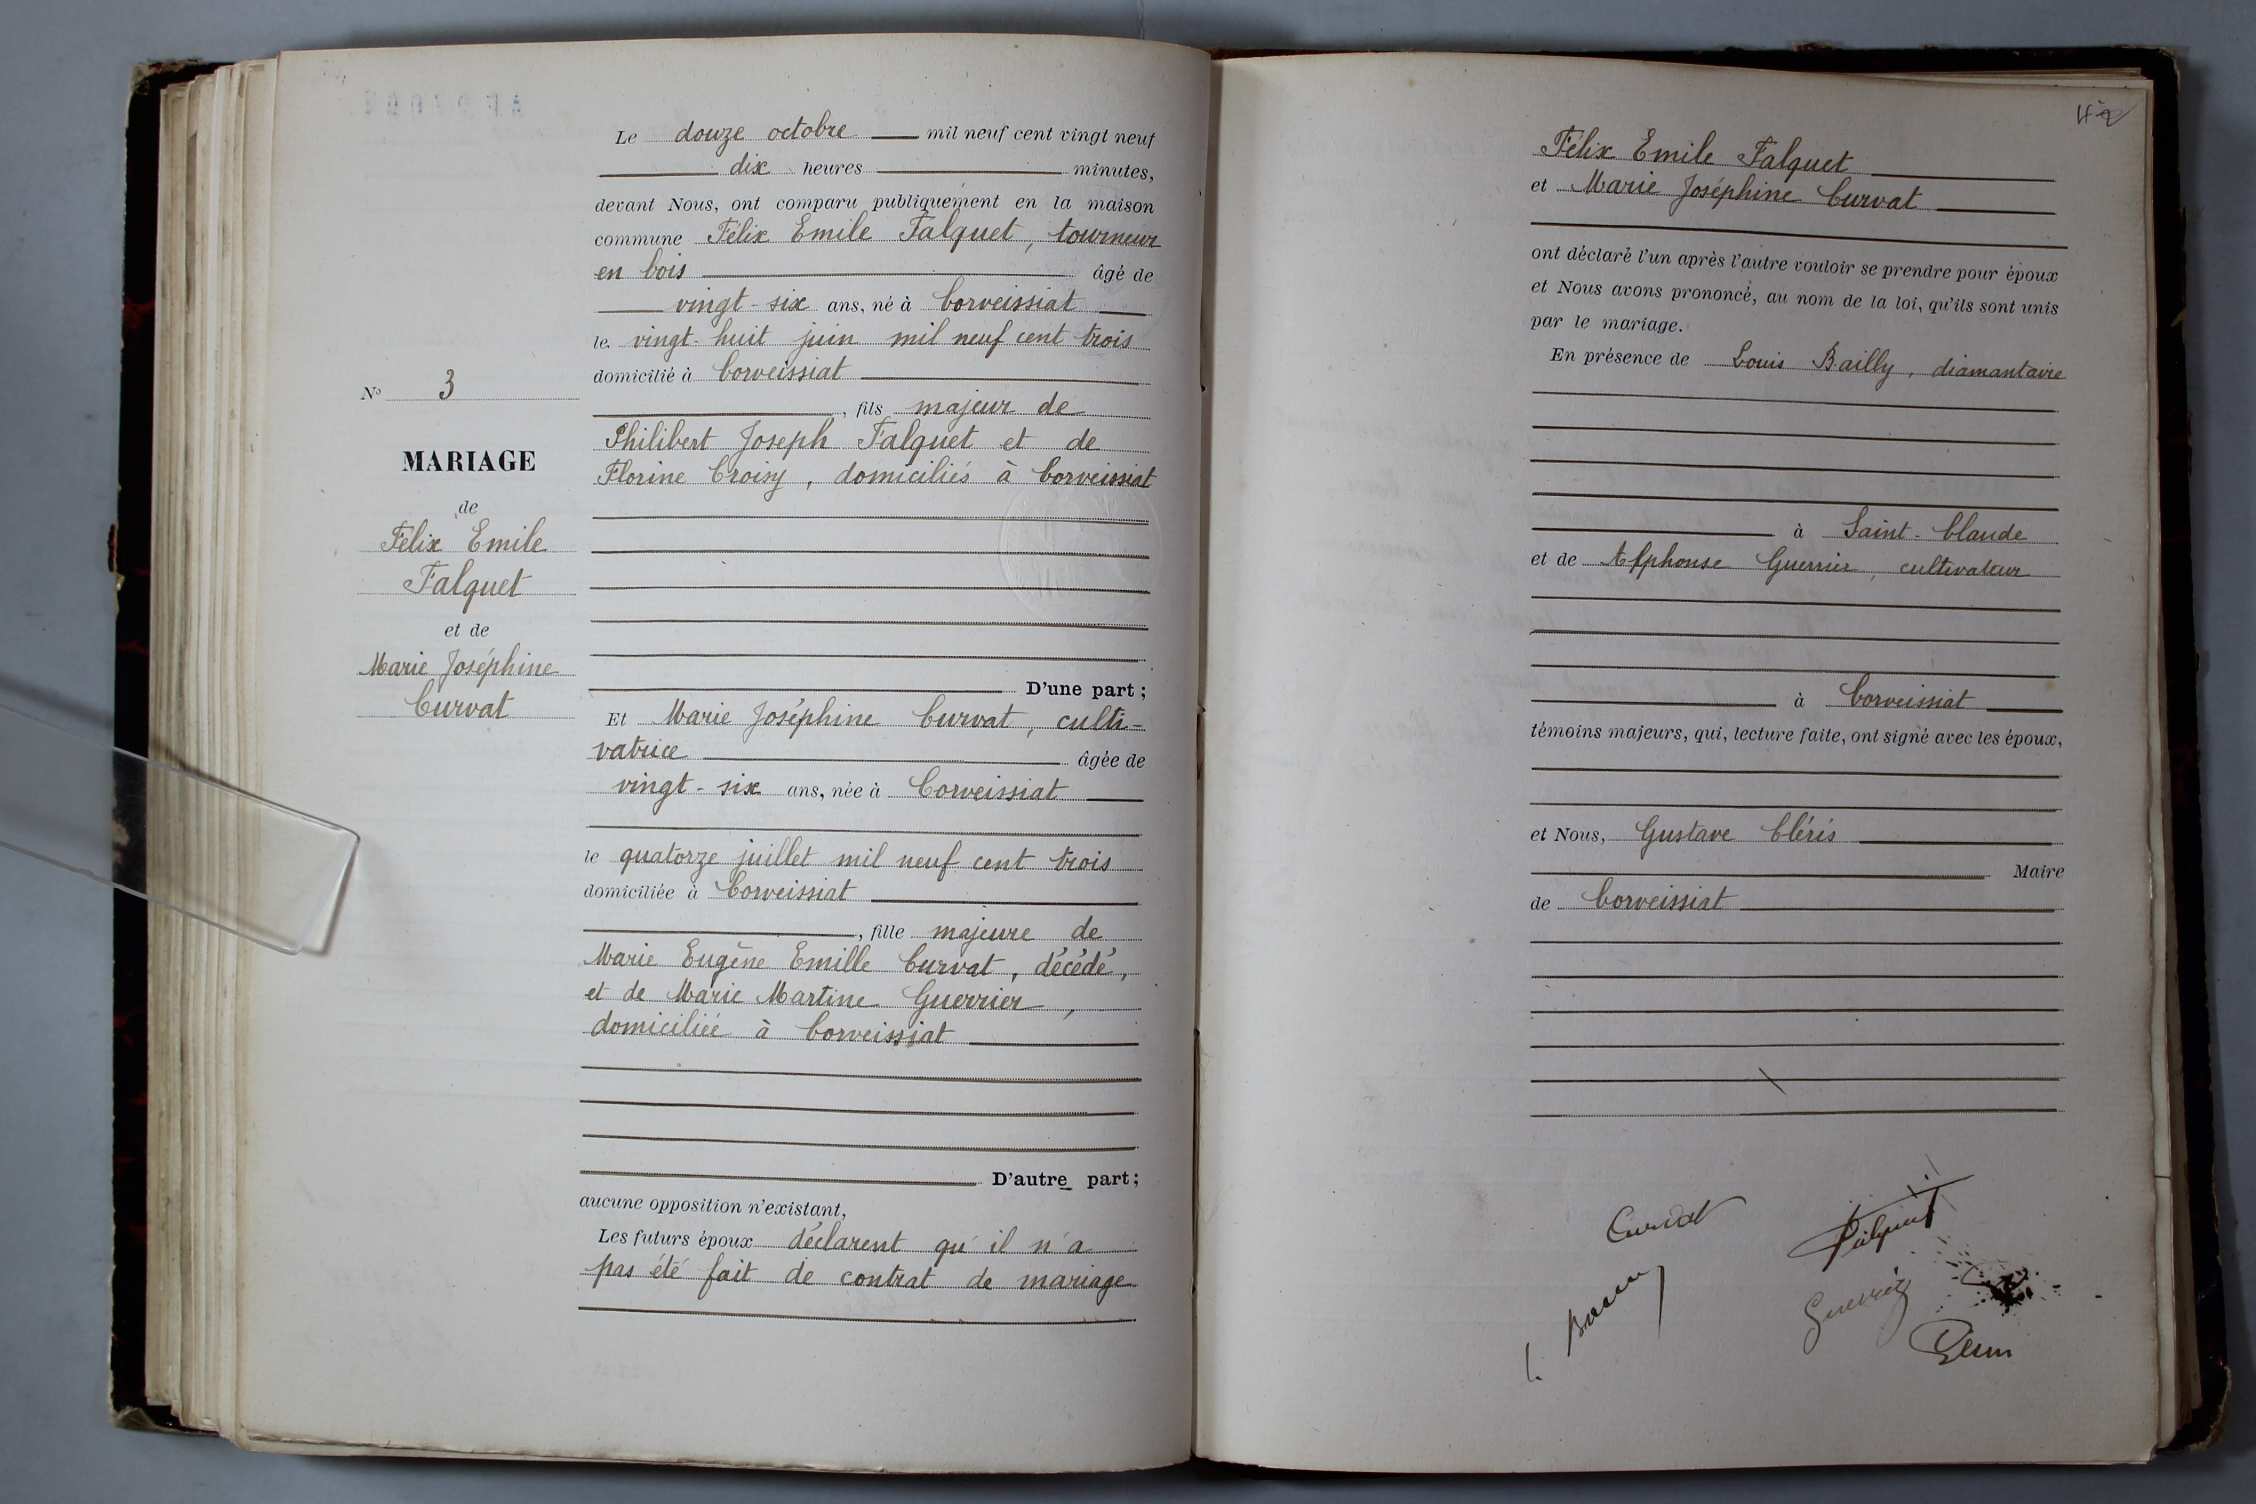 Le douze octobre mil neuf cent vingt neuf
dix heures minutes,
devant Nous, ont comparu publiquement en la maison
commune Félix Emile Falquet, tourneur
en bois âgé de
vingt-six ans, né à Corveissiat
le vingt-huit juin mil neuf cent trois
domicilié à Corveissiat
, fils majeur de
Philibert Joseph Falquet et de
Florine Croisy, domiciliés à Corveissiat
D'une part ;
Et Marie Joséphine Curvat, culti-
vatrice âgée de
vingt-six ans, née à Corveissiat
le quatorze juillet mil neuf cent trois
domiciliée à Corveissiat
, fille majeure de
Marie Eugène Emille Curvat, décédé,
et de Marie Martine Guerrier,
domiciliée à Corveissiat
D'autre part ;
aucune opposition n'existant,
Les futurs époux déclarent qu'il n'a
pas été fait de contrat de mariage
No 3
MARIAGE
de
Félix Emile
Falquet
et de
Marie Joséphine
Curvat
42
Félix Emile Falquet
et Marie Joséphine Curvat
ont déclaré l'un après l'autre vouloir se prendre pour époux
et Nous avons prononcé, au nom de la loi, qu'ils sont unis
par le mariage.
En présence de Louis Bailly, diamantaire
à Saint-Claude
et de Alphonse Guerrier, cultivateur
à Corveissiat
témoins majeurs, qui, lecture faite, ont signé avec les époux,
et Nous, Gustave Cléris
Maire
de Corveissiat
Curvat
Falquet
Guerrier